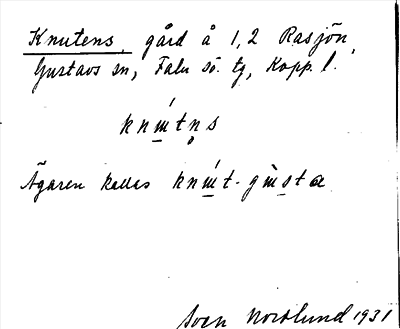 Knutens, gård å 1,2 Rasjön,
Gustavs sn, Falu sö. tg, Kopp. l.
knɯ́tn̥s
Ägaren kallas knɯ́t-gɯ̀sta
Sven Norlund 1931